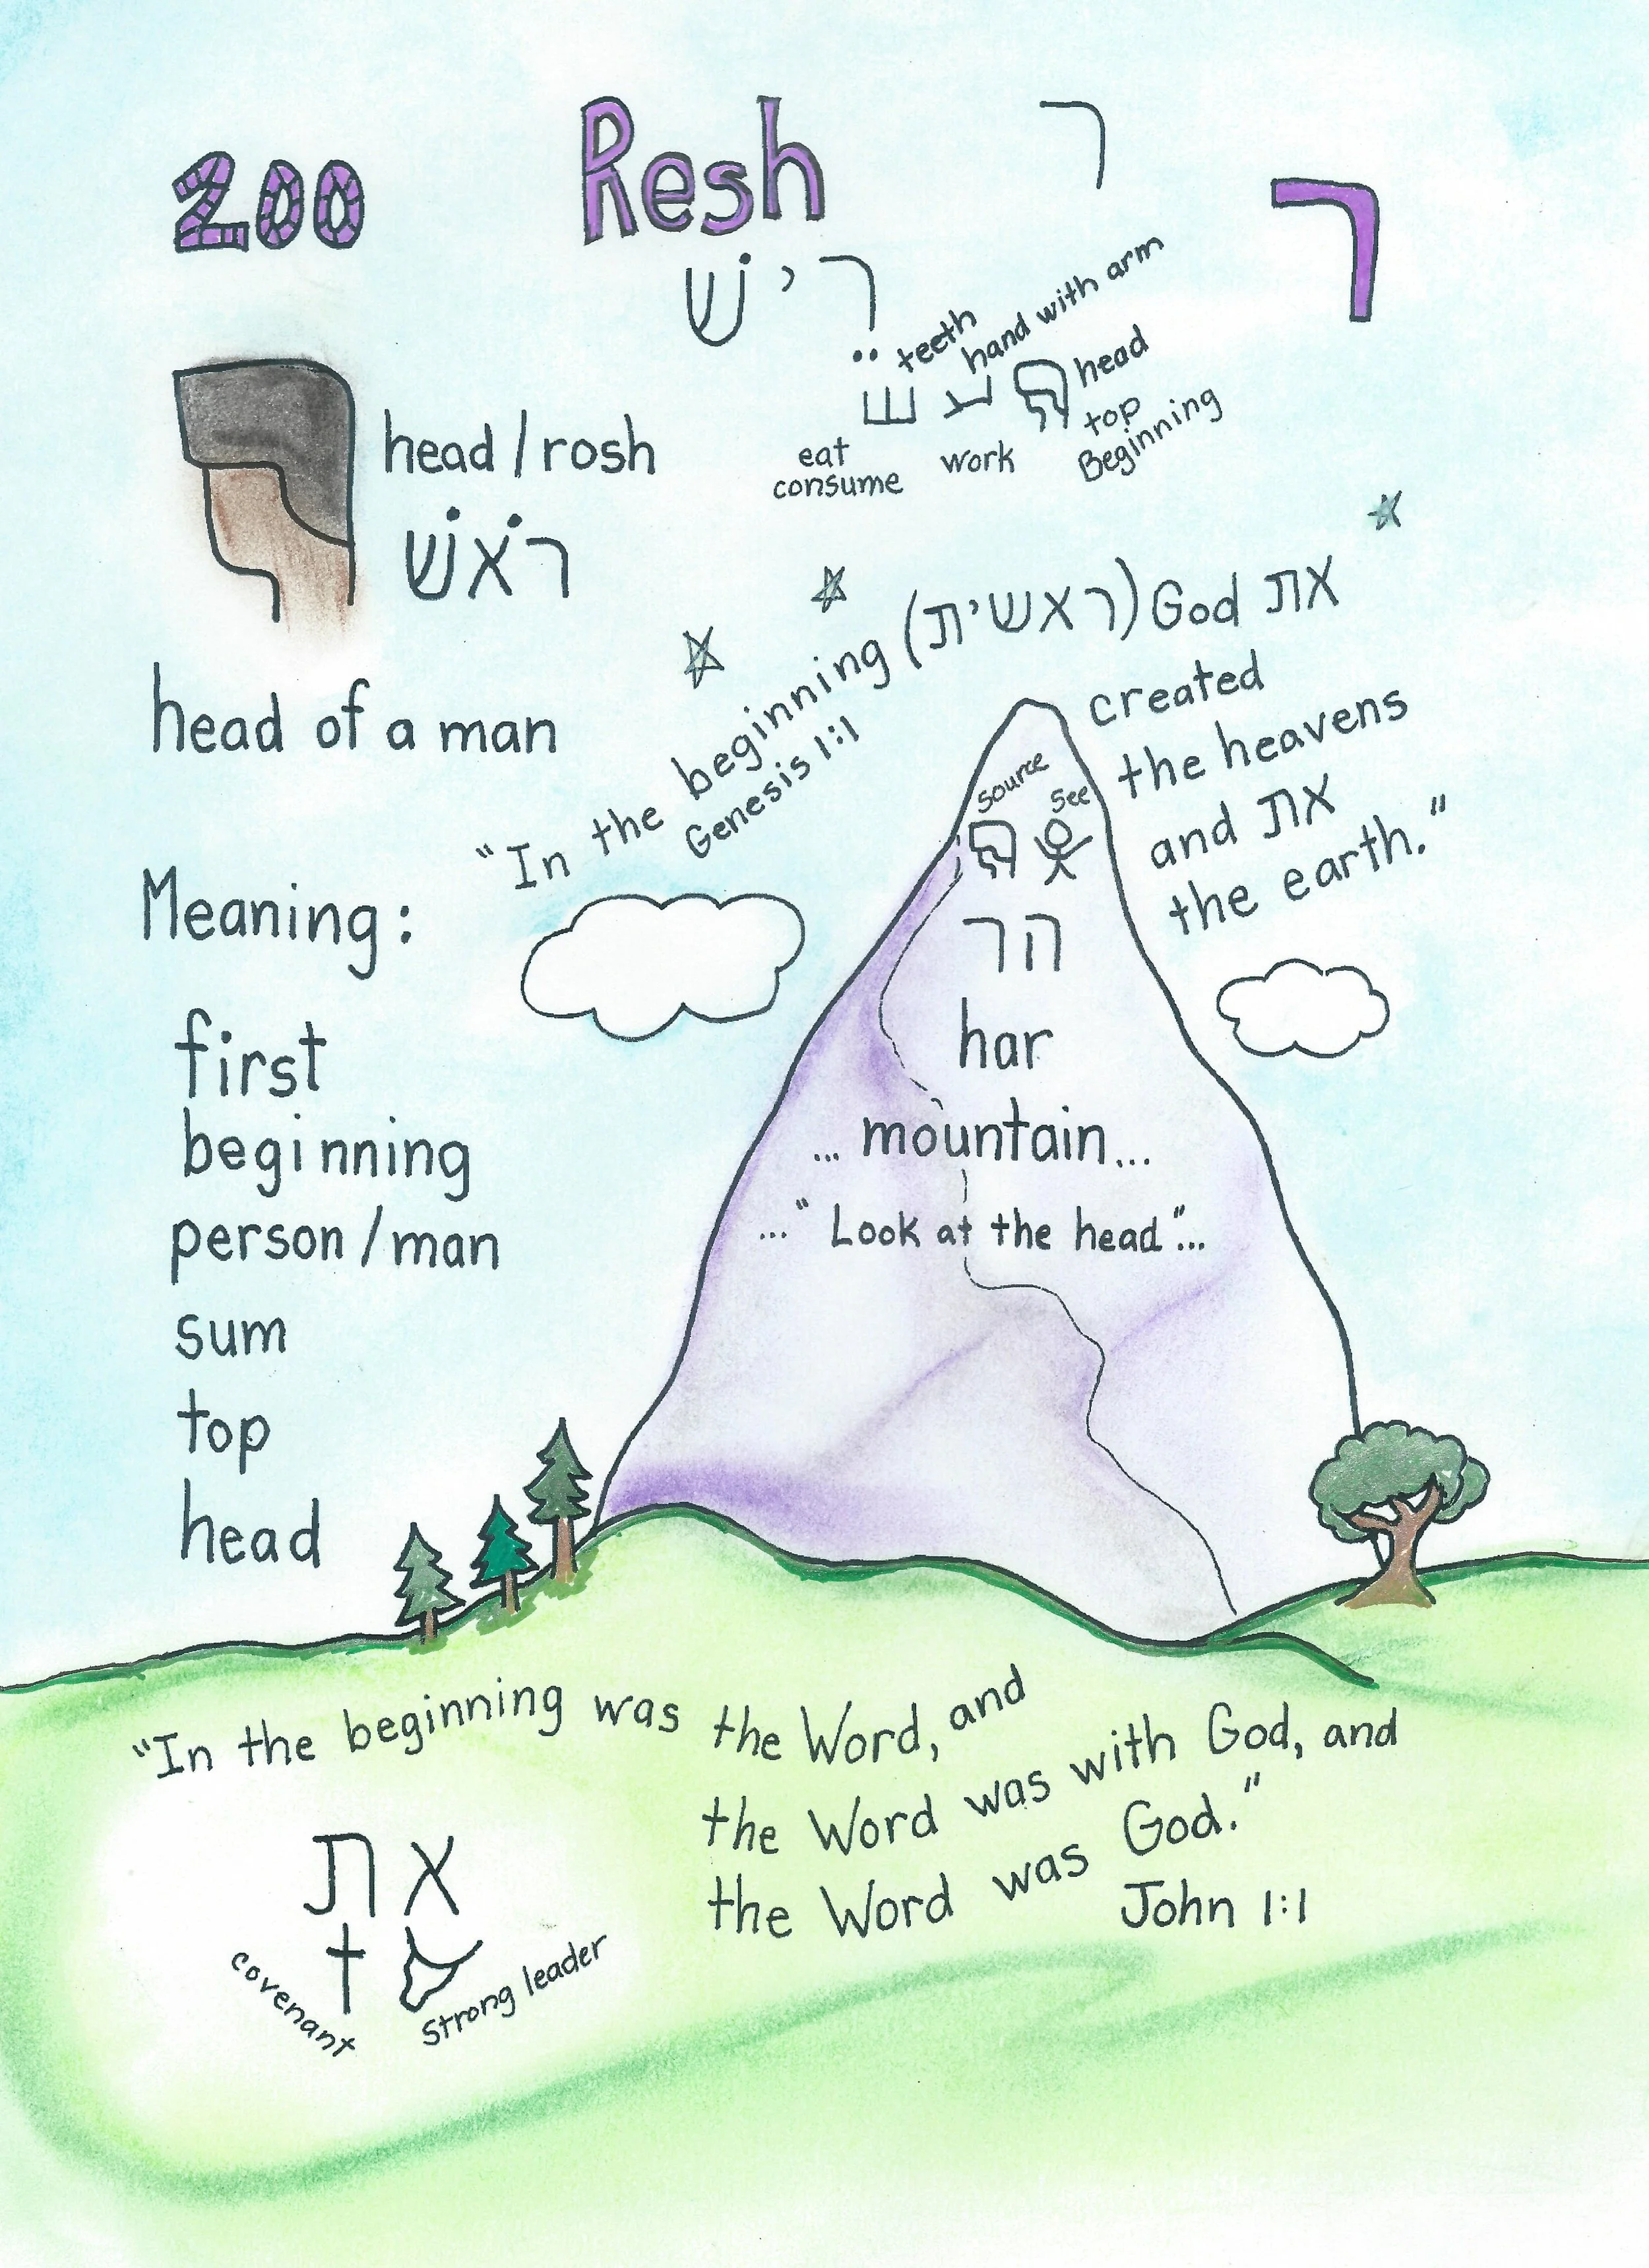 200
Resh
ר
ר
רישׁ
teeth
hand with arm
head
top
Beginning
eat
consume
work
head / rosh
רֹאשׁ
head of a man
"In the beginning (ראשית) God את
Genesis 1:1
created
the heavens
and את
the earth."
Meaning:
first
beginning
person / man
sum
top
head
source
see
הר
har
... mountain...
..." Look at the head"...
"In the beginning was the Word, and
the Word was with God, and
the Word was God."
John 1:1
את
covenant
strong leader